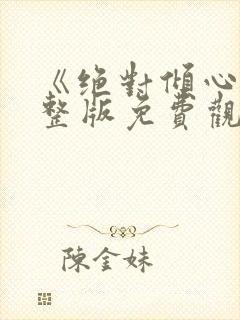 《絕對傾心
整版免費觀
陳金妹